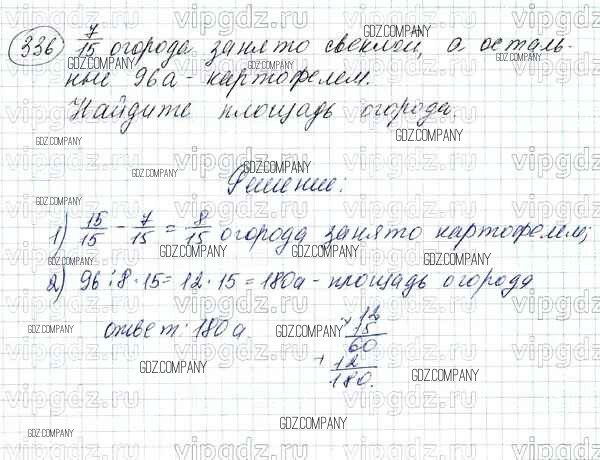 336 7/15 огорода занято свеклой, а осталь-
ные 96а - картофелем.
Найдите площадь огорода.
Решение:
1) 15/15 - 7/15 = 8/15 огорода занято картофелем;
2) 96 : 8 · 15 = 12 · 15 = 180а - площадь огорода
ответ: 180 а.
12
× 15
60
+ 12
180.
vipgdz.ru
GDZ.COMPANY